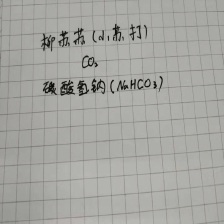 柳苏苏(小苏打)
CO₂
碳酸氢钠(NaHCO₃)